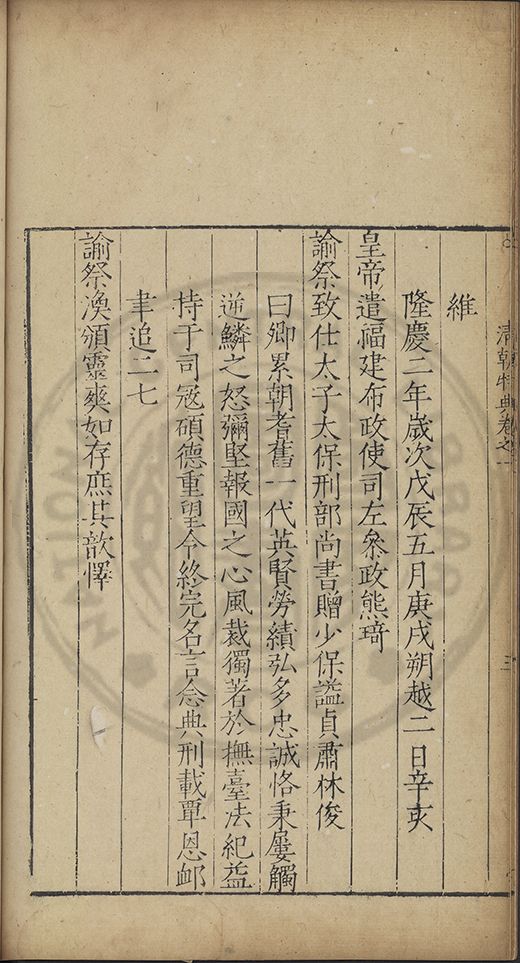 清朝特典卷之一
三
維
隆慶二年歲次戊辰五月庚戌朔越二日辛亥
皇帝遣福建布政使司左叅政熊琦
諭祭致仕太子太保刑部尚書贈少保謚貞肅林俊
曰卿累朝耆舊一代英賢勞績弘多忠誠恪秉屢觸
逆鱗之怒彌堅報國之心風裁獨著於撫臺法紀益
持于司冦碩德重望令終完名言念典刑載覃恩卹
聿追二七
諭祭渙頒靈爽如存庶其歆懌